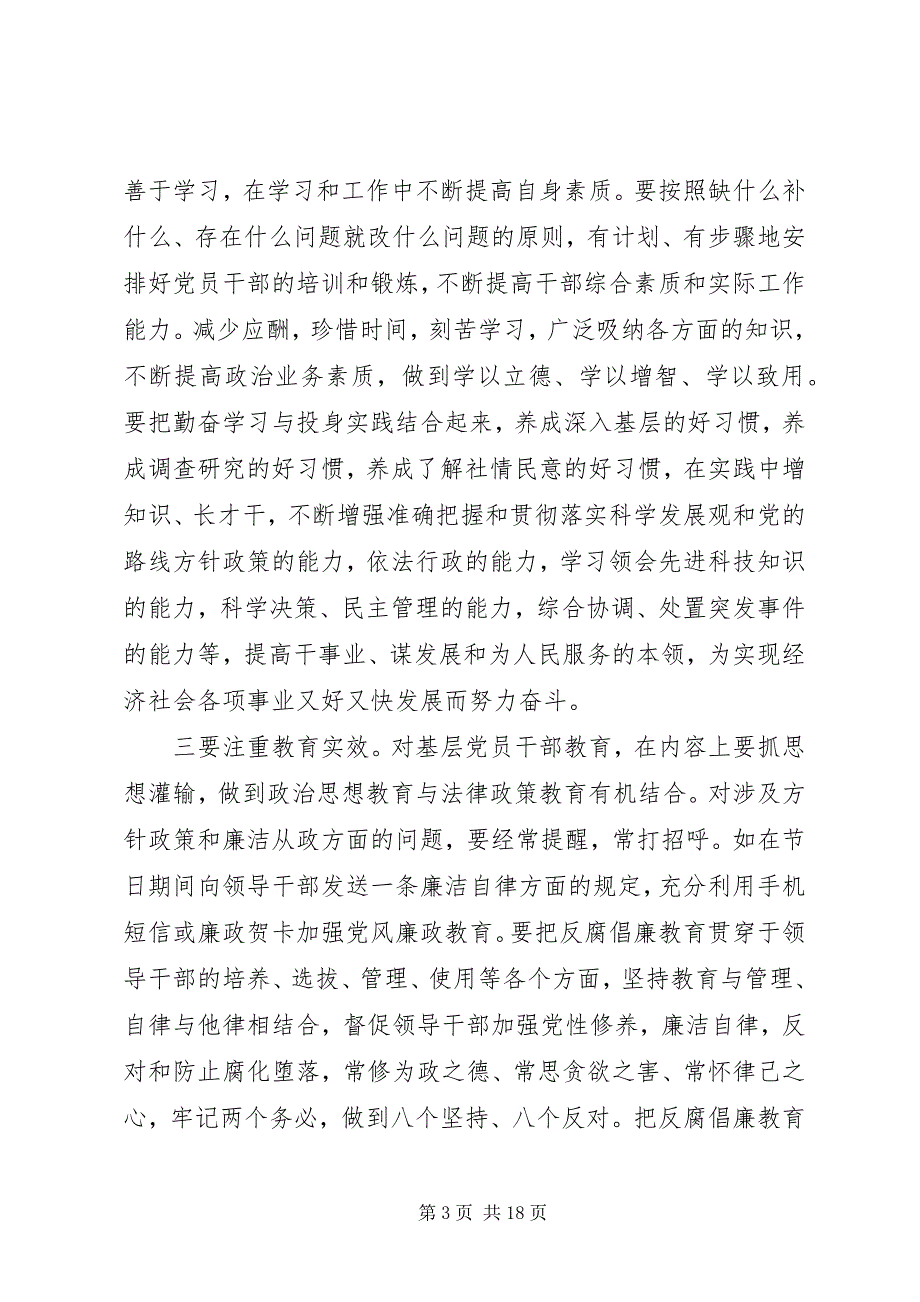 善于学习，在学习和工作中不断提高自身素质。要按照缺什么补
什么、存在什么问题就改什么问题的原则，有计划、有步骤地安
排好党员干部的培训和锻炼，不断提高干部综合素质和实际工作
能力。减少应酬，珍惜时间，刻苦学习，广泛吸纳各方面的知识，
不断提高政治业务素质，做到学以立德、学以增智、学以致用。
要把勤奋学习与投身实践结合起来，养成深入基层的好习惯，养
成调查研究的好习惯，养成了解社情民意的好习惯，在实践中增
知识、长才干，不断增强准确把握和贯彻落实科学发展观和党的
路线方针政策的能力，依法行政的能力，学习领会先进科技知识
的能力，科学决策、民主管理的能力，综合协调、处置突发事件
的能力等，提高干事业、谋发展和为人民服务的本领，为实现经
济社会各项事业又好又快发展而努力奋斗。
三要注重教育实效。对基层党员干部教育，在内容上要抓思
想灌输，做到政治思想教育与法律政策教育有机结合。对涉及方
针政策和廉洁从政方面的问题，要经常提醒，常打招呼。如在节
日期间向领导干部发送一条廉洁自律方面的规定，充分利用手机
短信或廉政贺卡加强党风廉政教育。要把反腐倡廉教育贯穿于领
导干部的培养、选拔、管理、使用等各个方面，坚持教育与管理、
自律与他律相结合，督促领导干部加强党性修养，廉洁自律，反
对和防止腐化堕落，常修为政之德、常思贪欲之害、常怀律己之
心，牢记两个务必，做到八个坚持、八个反对。把反腐倡廉教育
第 3 页 共 18 页